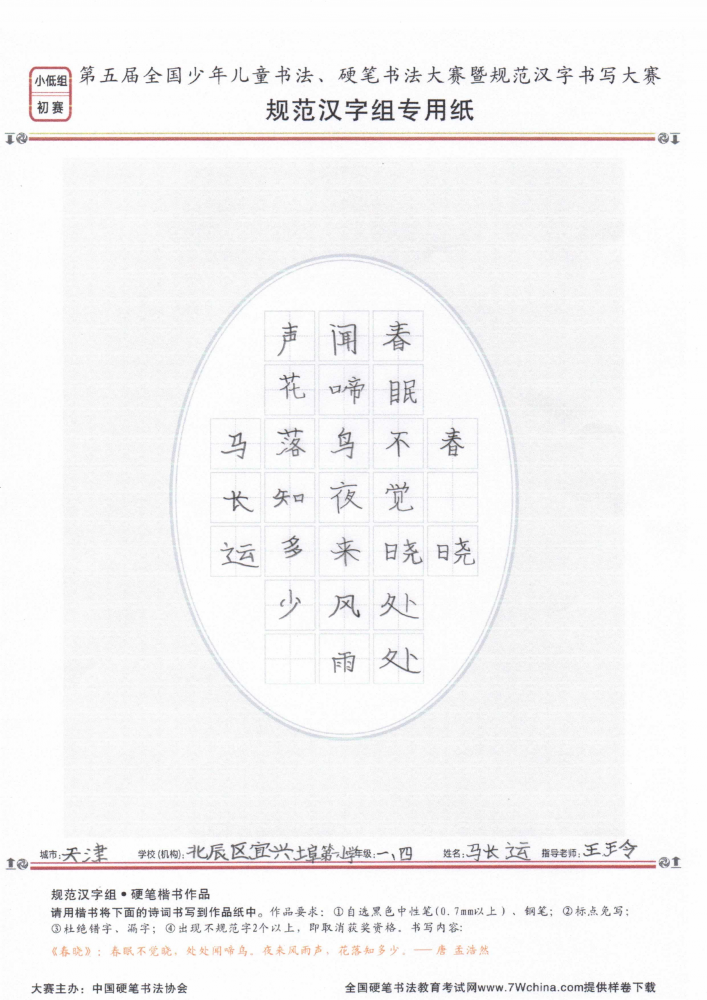 小低组
初赛
第五届全国少年儿童书法、硬笔书法大赛暨规范汉字书写大赛
规范汉字组专用纸
春晓
春眠不觉晓处处
闻啼鸟夜来风雨
声花落知多少
马长运
城市:天津 学校(机构):北辰区宜兴埠第一小学 年级:一、四 姓名:马长运 指导老师:王玉令
规范汉字组•硬笔楷书作品
请用楷书将下面的诗词书写到作品纸中。作品要求：①自选黑色中性笔(0.7mm以上)、钢笔；②标点免写；
③杜绝错字、漏字；④出现不规范字2个以上，即取消获奖资格。书写内容：
《春晓》：春眠不觉晓，处处闻啼鸟。夜来风雨声，花落知多少。——唐 孟浩然
大赛主办：中国硬笔书法协会
全国硬笔书法教育考试网www.7Wchina.com提供样卷下载